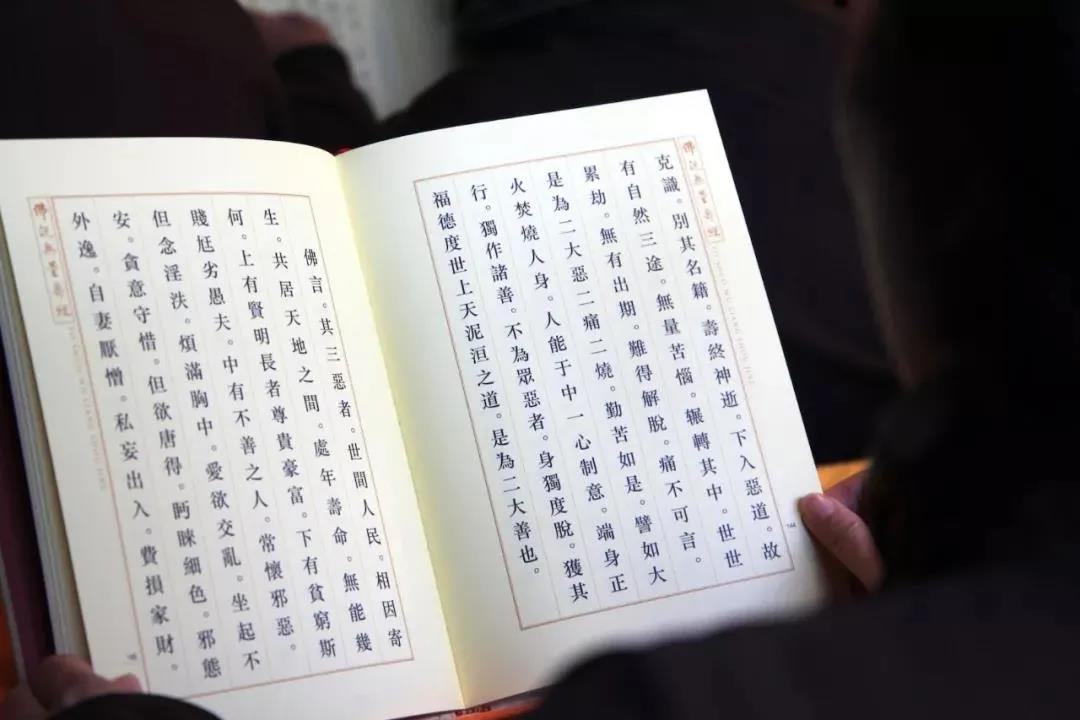 佛說無量壽經
克識。別其名籍。壽終神逝。下入惡道。故
有自然三途。無量苦惱。輾轉其中。世世
累劫。無有出期。難得解脫。痛不可言。
是為二大惡二痛二燒。勤苦如是。譬如大
火焚燒人身。人能于中一心制意。端身正
行。獨作諸善。不為眾惡者。身獨度脫。獲其
福德度世上天泥洹之道。是為二大善也。
佛言。其三惡者。世間人民。相因寄
生。共居天地之間。處年壽命。無能幾
何。上有賢明長者尊貴豪富。下有貧窮斯
賤尪劣愚夫。中有不善之人。常懷邪惡。
但念淫泆。煩滿胸中。愛欲交亂。坐起不
安。貪意守惜。但欲唐得。眄睞細色。邪態
外逸。自妻厭憎。私妄出入。費損家財。
佛說無量壽經